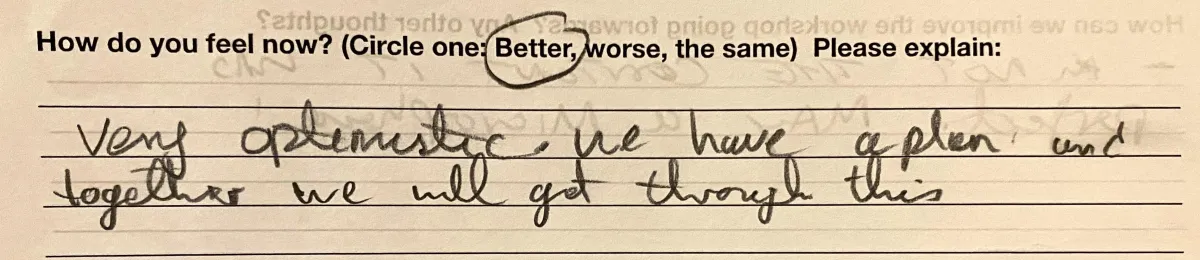 How do you feel now? (Circle one: Better, worse, the same) Please explain:
Very optimistic. we have a plan and
together we will get through this